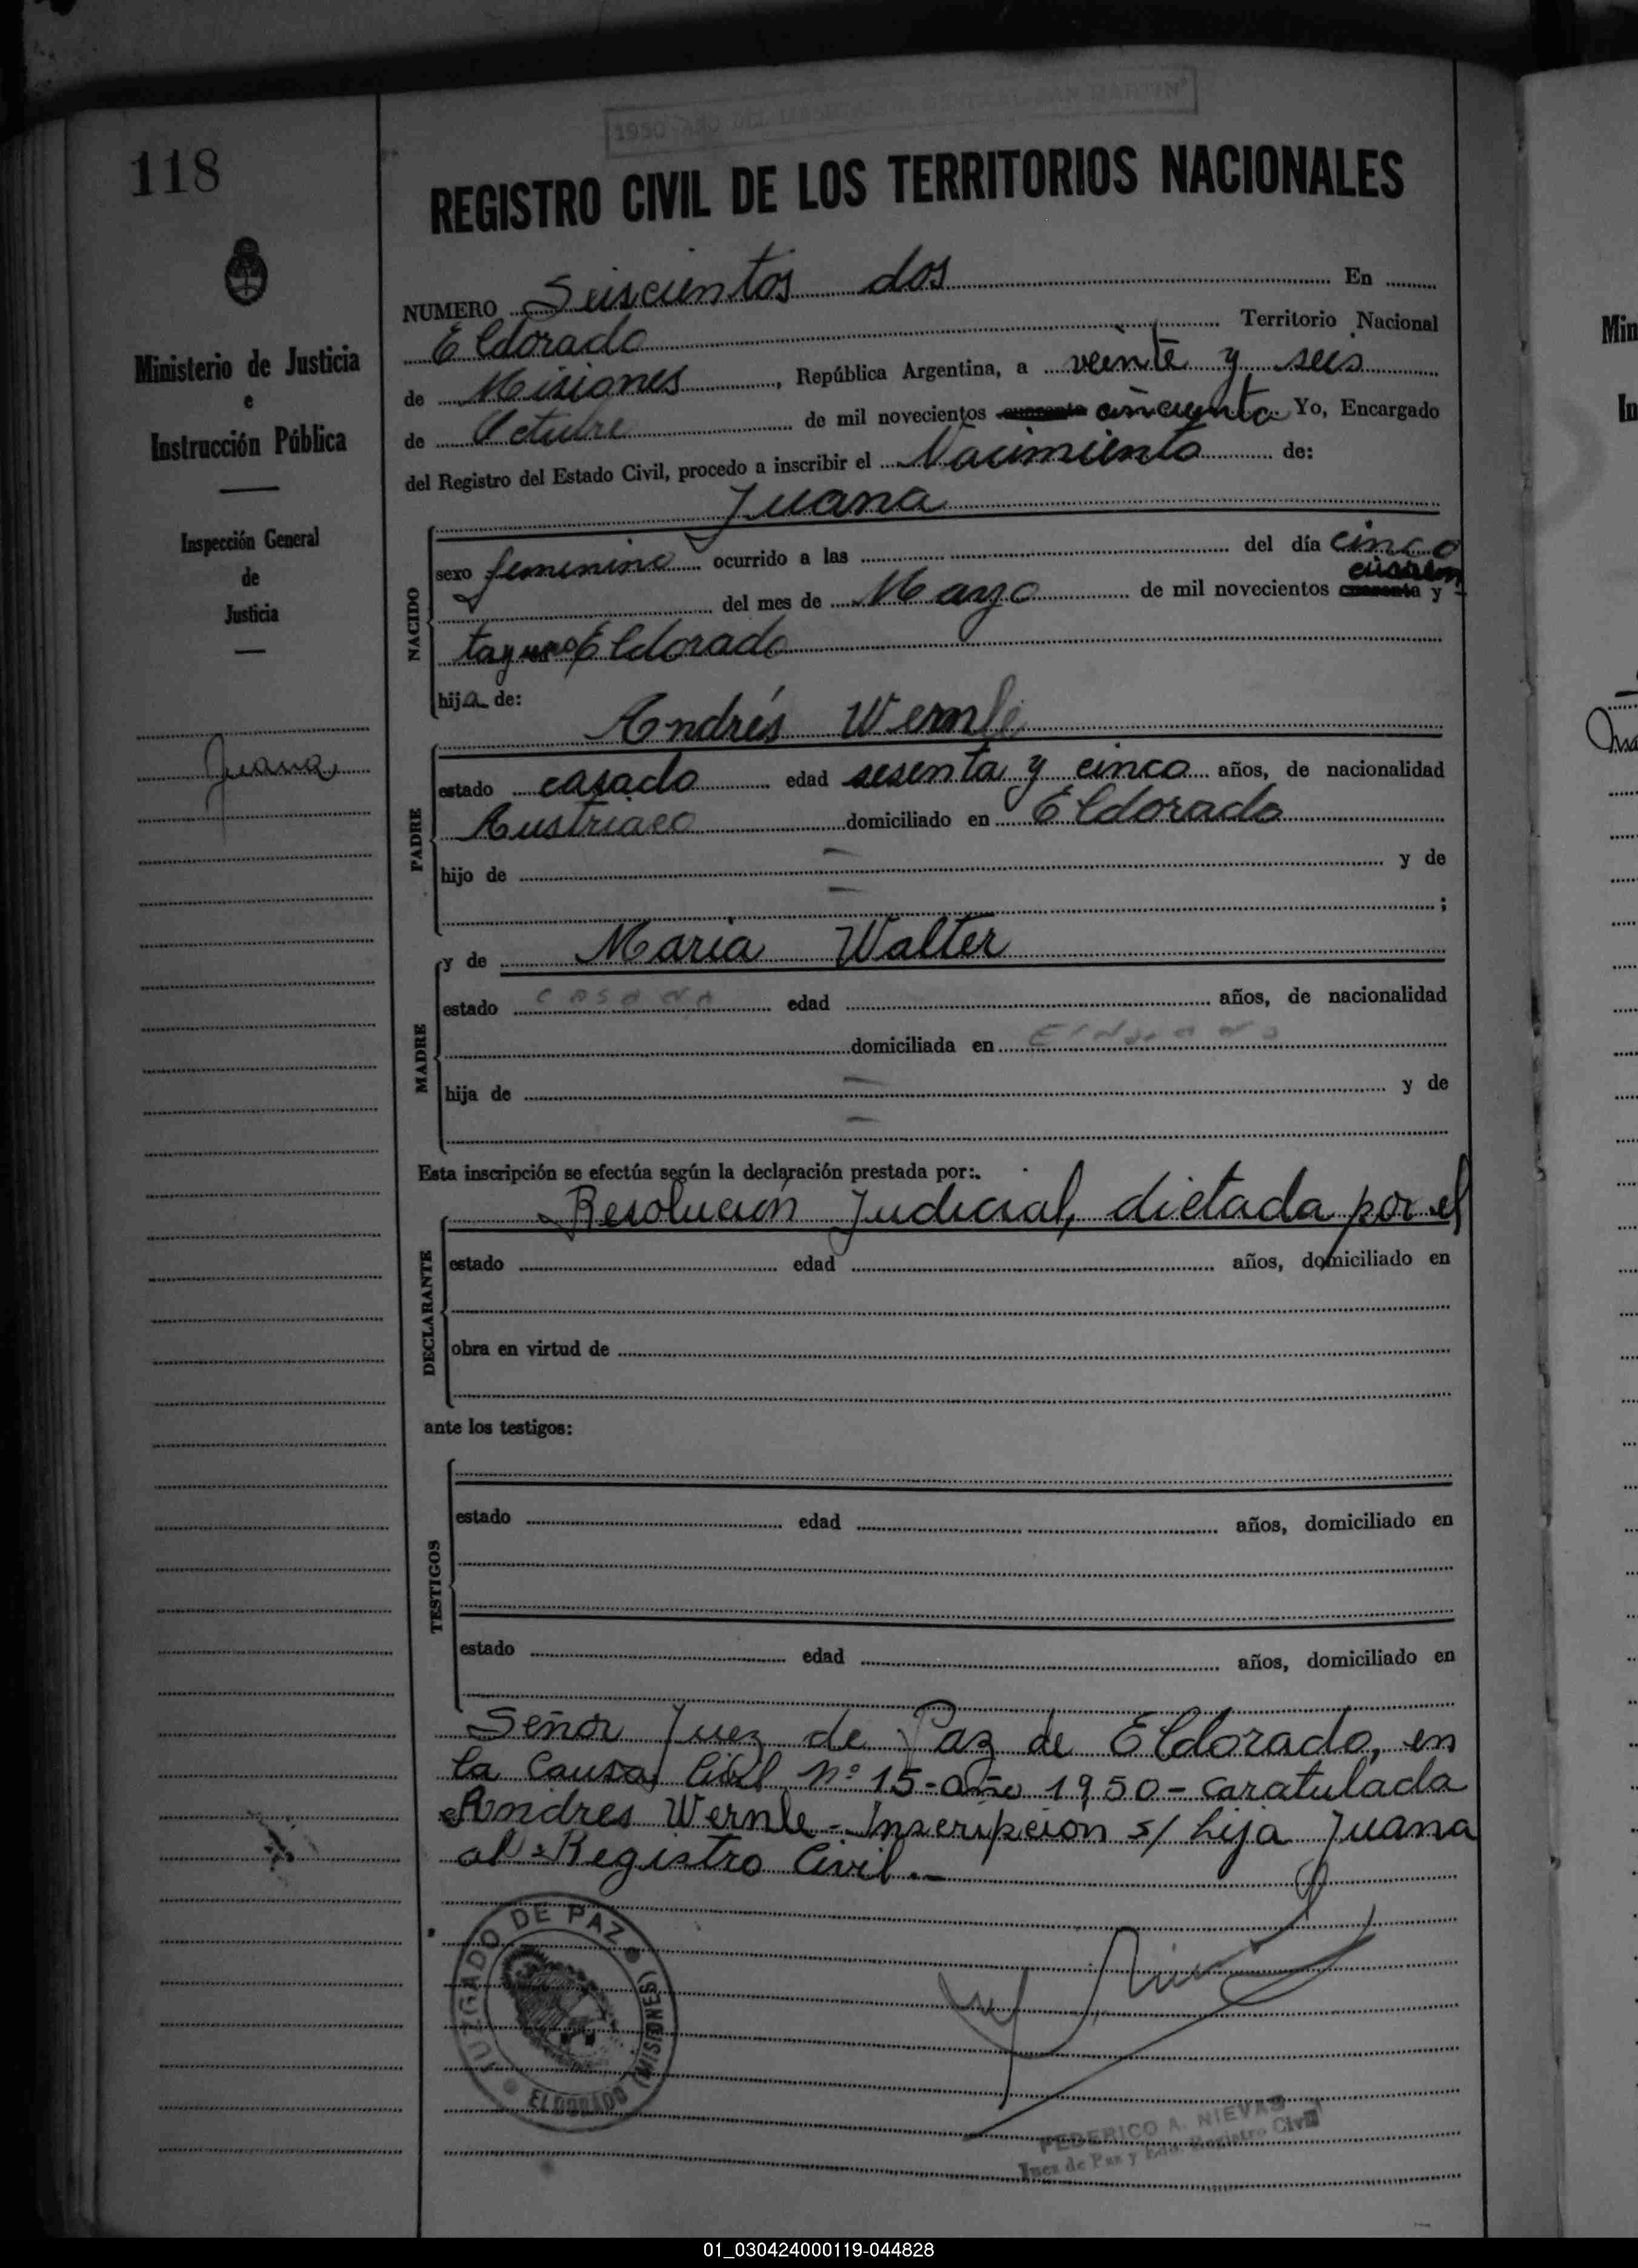 1950 AÑO DEL LIBERTADOR GENERAL SAN MARTIN
118
REGISTRO CIVIL DE LOS TERRITORIOS NACIONALES
Ministerio de Justicia
e
Instrucción Pública
Inspección General
de
Justicia
Juana
NUMERO Seiscientos dos En
Eldorado Territorio Nacional
de Misiones, República Argentina, a veinte y seis
de Octubre de mil novecientos cuarenta cincuenta Yo, Encargado
del Registro del Estado Civil, procedo a inscribir el Nacimiento de:
Juana
NACIDO
sexo femenino ocurrido a las del día cinco
del mes de Marzo de mil novecientos cuarenta y cuaren
ta y uno Eldorado
hija de:
Andrés Wernle
PADRE
estado casado edad sesenta y cinco años, de nacionalidad
Austriaco domiciliado en Eldorado
hijo de – y de
– ;
y de Maria Walter
MADRE
estado casada edad años, de nacionalidad
domiciliada en Eldorado
hija de – y de
–
Esta inscripción se efectúa según la declaración prestada por:
Resolución Judicial, dictada por el
DECLARANTE
estado edad años, domiciliado en
obra en virtud de
ante los testigos:
TESTIGOS
estado edad años, domiciliado en
estado edad años, domiciliado en
Señor Juez de Paz de Eldorado, en
la Causa Civil Nº 15-año 1950- caratulada
Andres Wernle - Inscripcion s/ hija Juana
al Registro Civil.-
JUZGADO DE PAZ
ELDORADO (MISIONES)
FEDERICO A. NIEVAS
Juez de Paz y Enc. Registro Civil
01_030424000119-044828